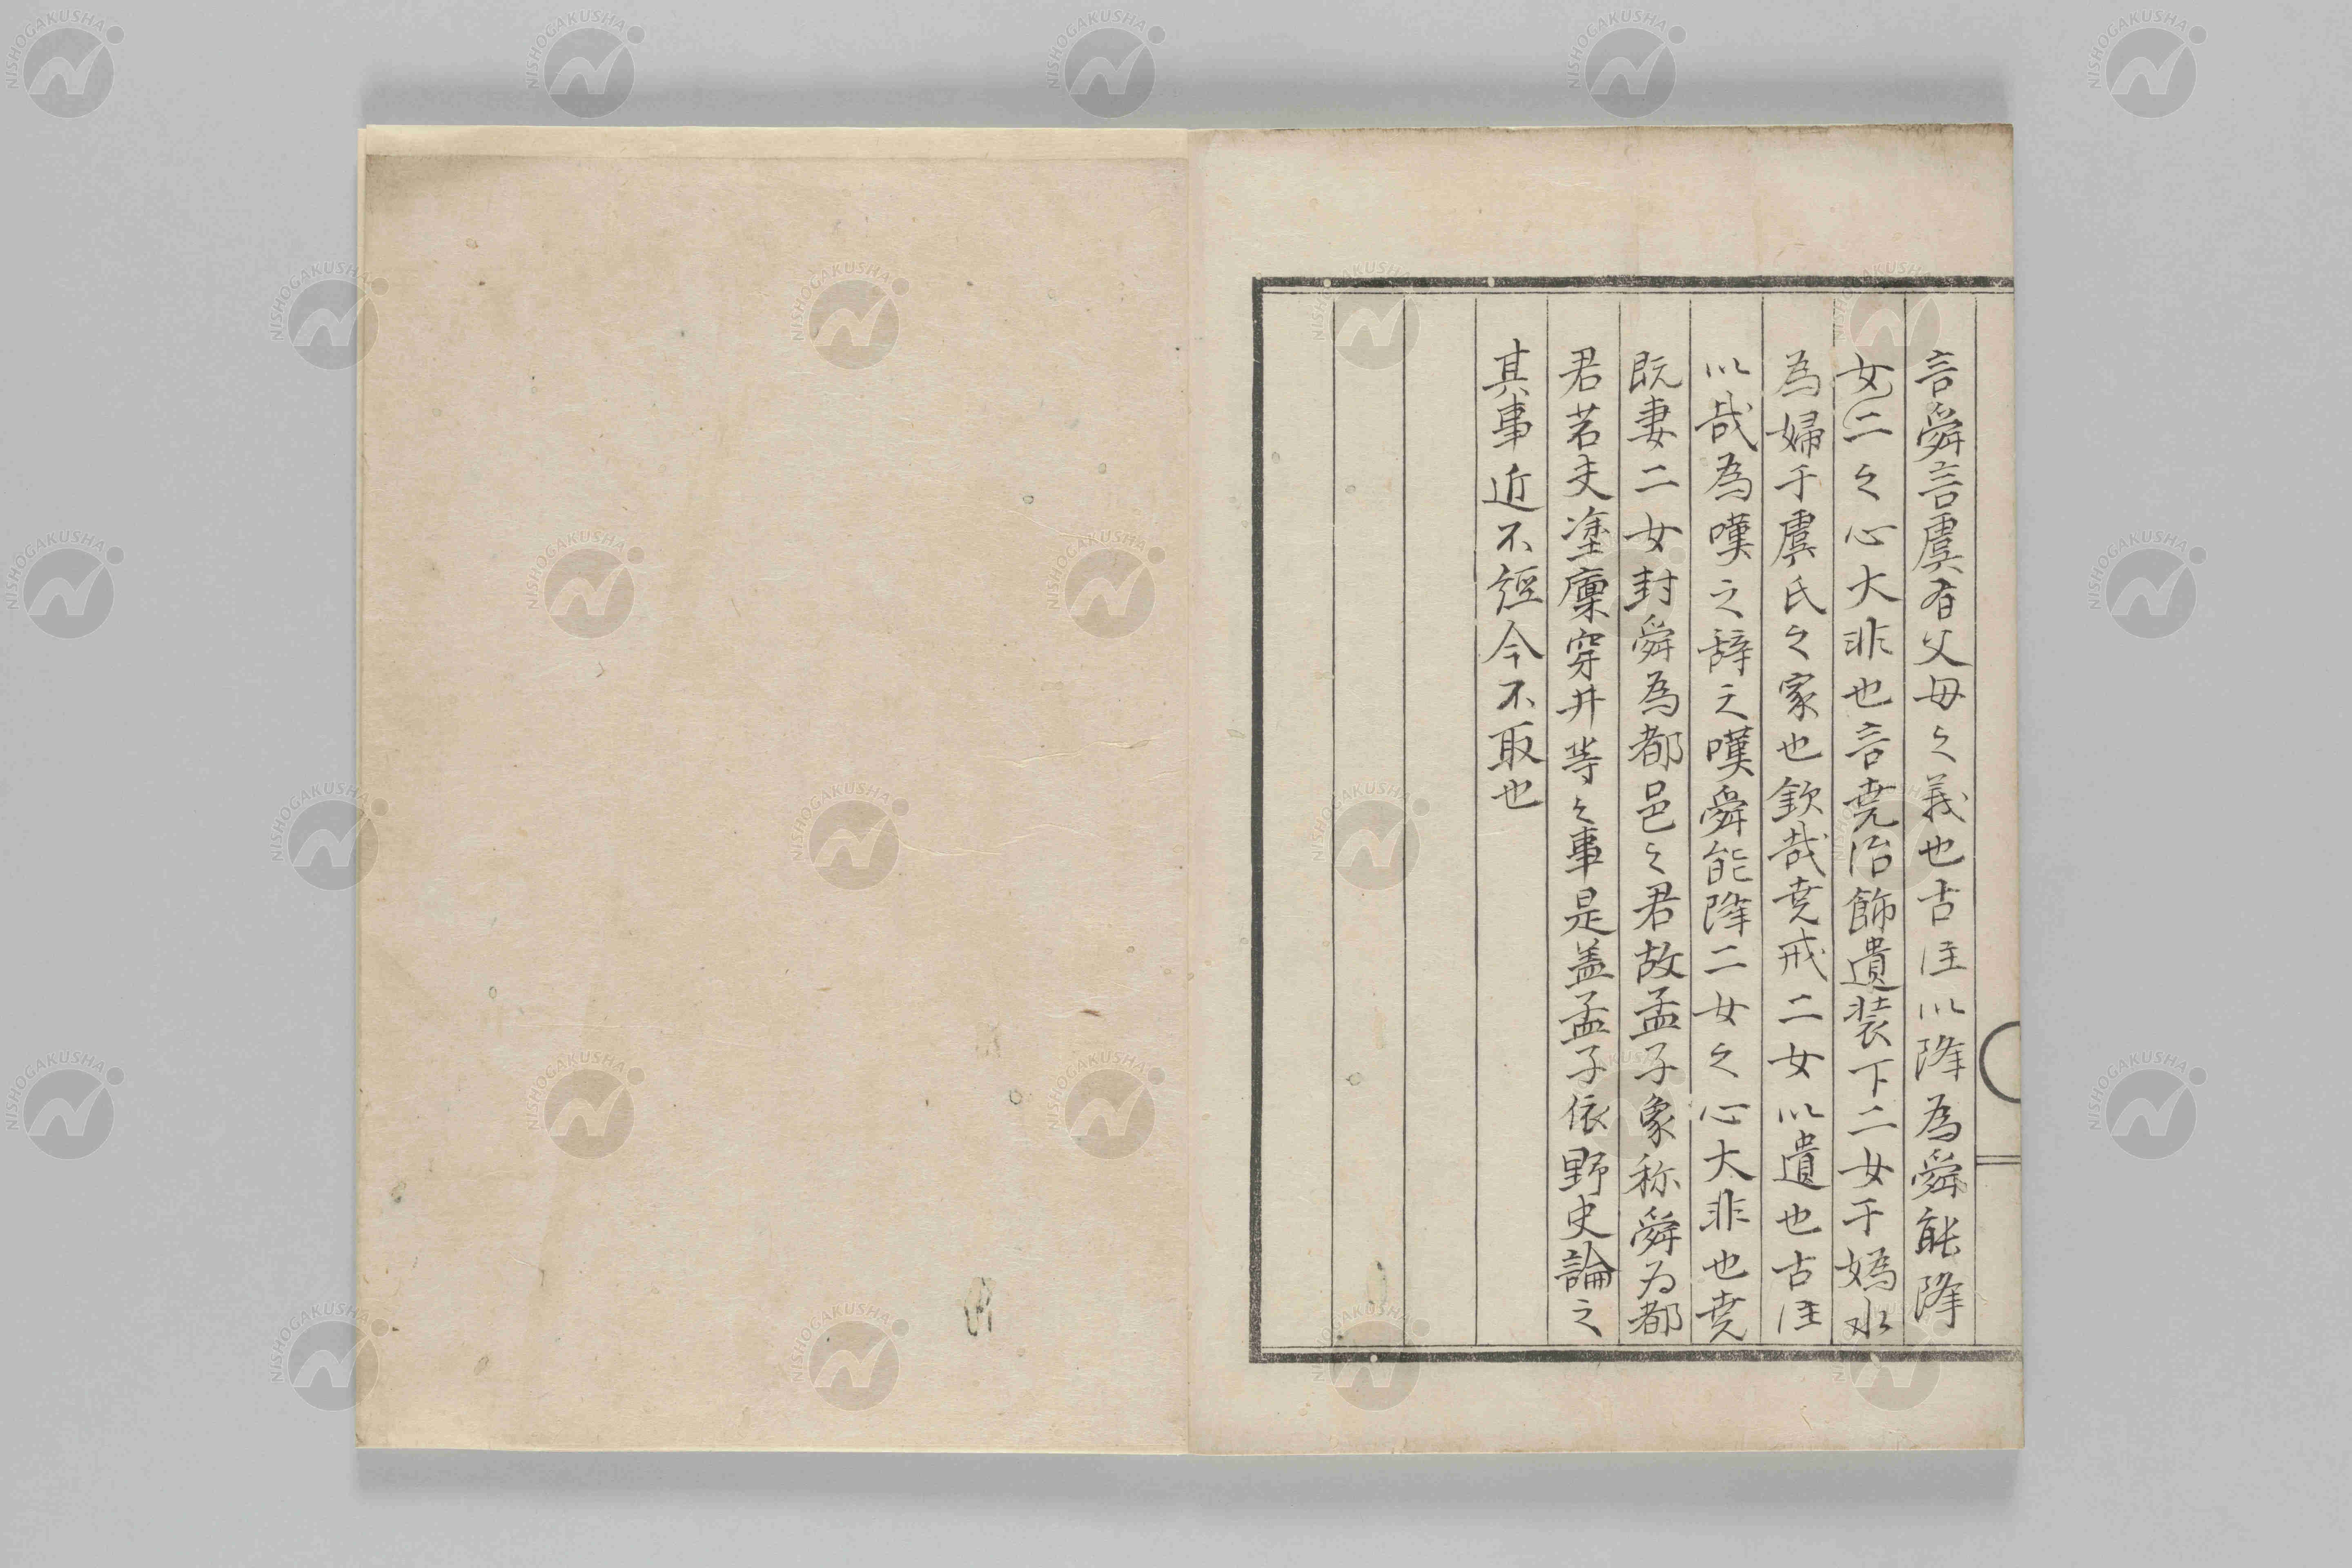 言舜言虞有父母之義也古注以降為舜能降
女二之心大非也言堯治飾遺装下二女于嬀水
為婦于虞氏之家也欽哉堯戒二女以遺也古注
以哉為嘆之辞之嘆舜能降二女之心大非也堯
既妻二女封舜為都邑之君故孟子象称舜為都
君若夫塗廩穿井等之事是盖孟子依野史論之
其事近不経今不取也
NISHOGAKUSHA